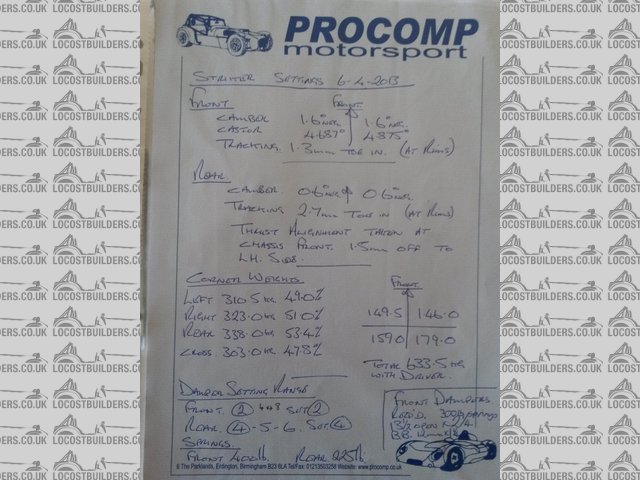 PROCOMP
motorsport
STRIKER SETTINGS 6-4-2013
FRONT FRONT
CAMBER 1.6°NEG. 1.6°NEG.
CASTOR 4.687° 4.875°
TRACKING 1.3mm TOE IN. (AT RIMS)
REAR.
CAMBER 0.6°NEG 0.6°NEG.
TRACKING 2.7mm TOE IN (AT RIMS)
THRUST ALIGNMENT TAKEN AT
CHASSIS FRONT. 1.5mm OFF TO
L.H. SIDE.
CORNER WEIGHTS FRONT
LEFT 310.5 KG. 49.0%
RIGHT 323.0 KG 51.0%
149.5 146.0
REAR 338.0 KG 53.4%
159.0 179.0
CROSS 303.0 KG. 47.8%
TOTAL 633.5 KG
WITH DRIVER.
DAMPER SETTING RANGE
FRONT. 2 SET 2
REAR. 4-5-6. SET 4
SPRINGS.
FRONT 400lb. REAR 225lb
FRONT DAMPERS.
6 The Parklands, Erdington, Birmingham B23 6LA Tel/Fax: 01213503258 Website: www.procomp.co.uk
LOCOSTBUILDERS.CO.UK